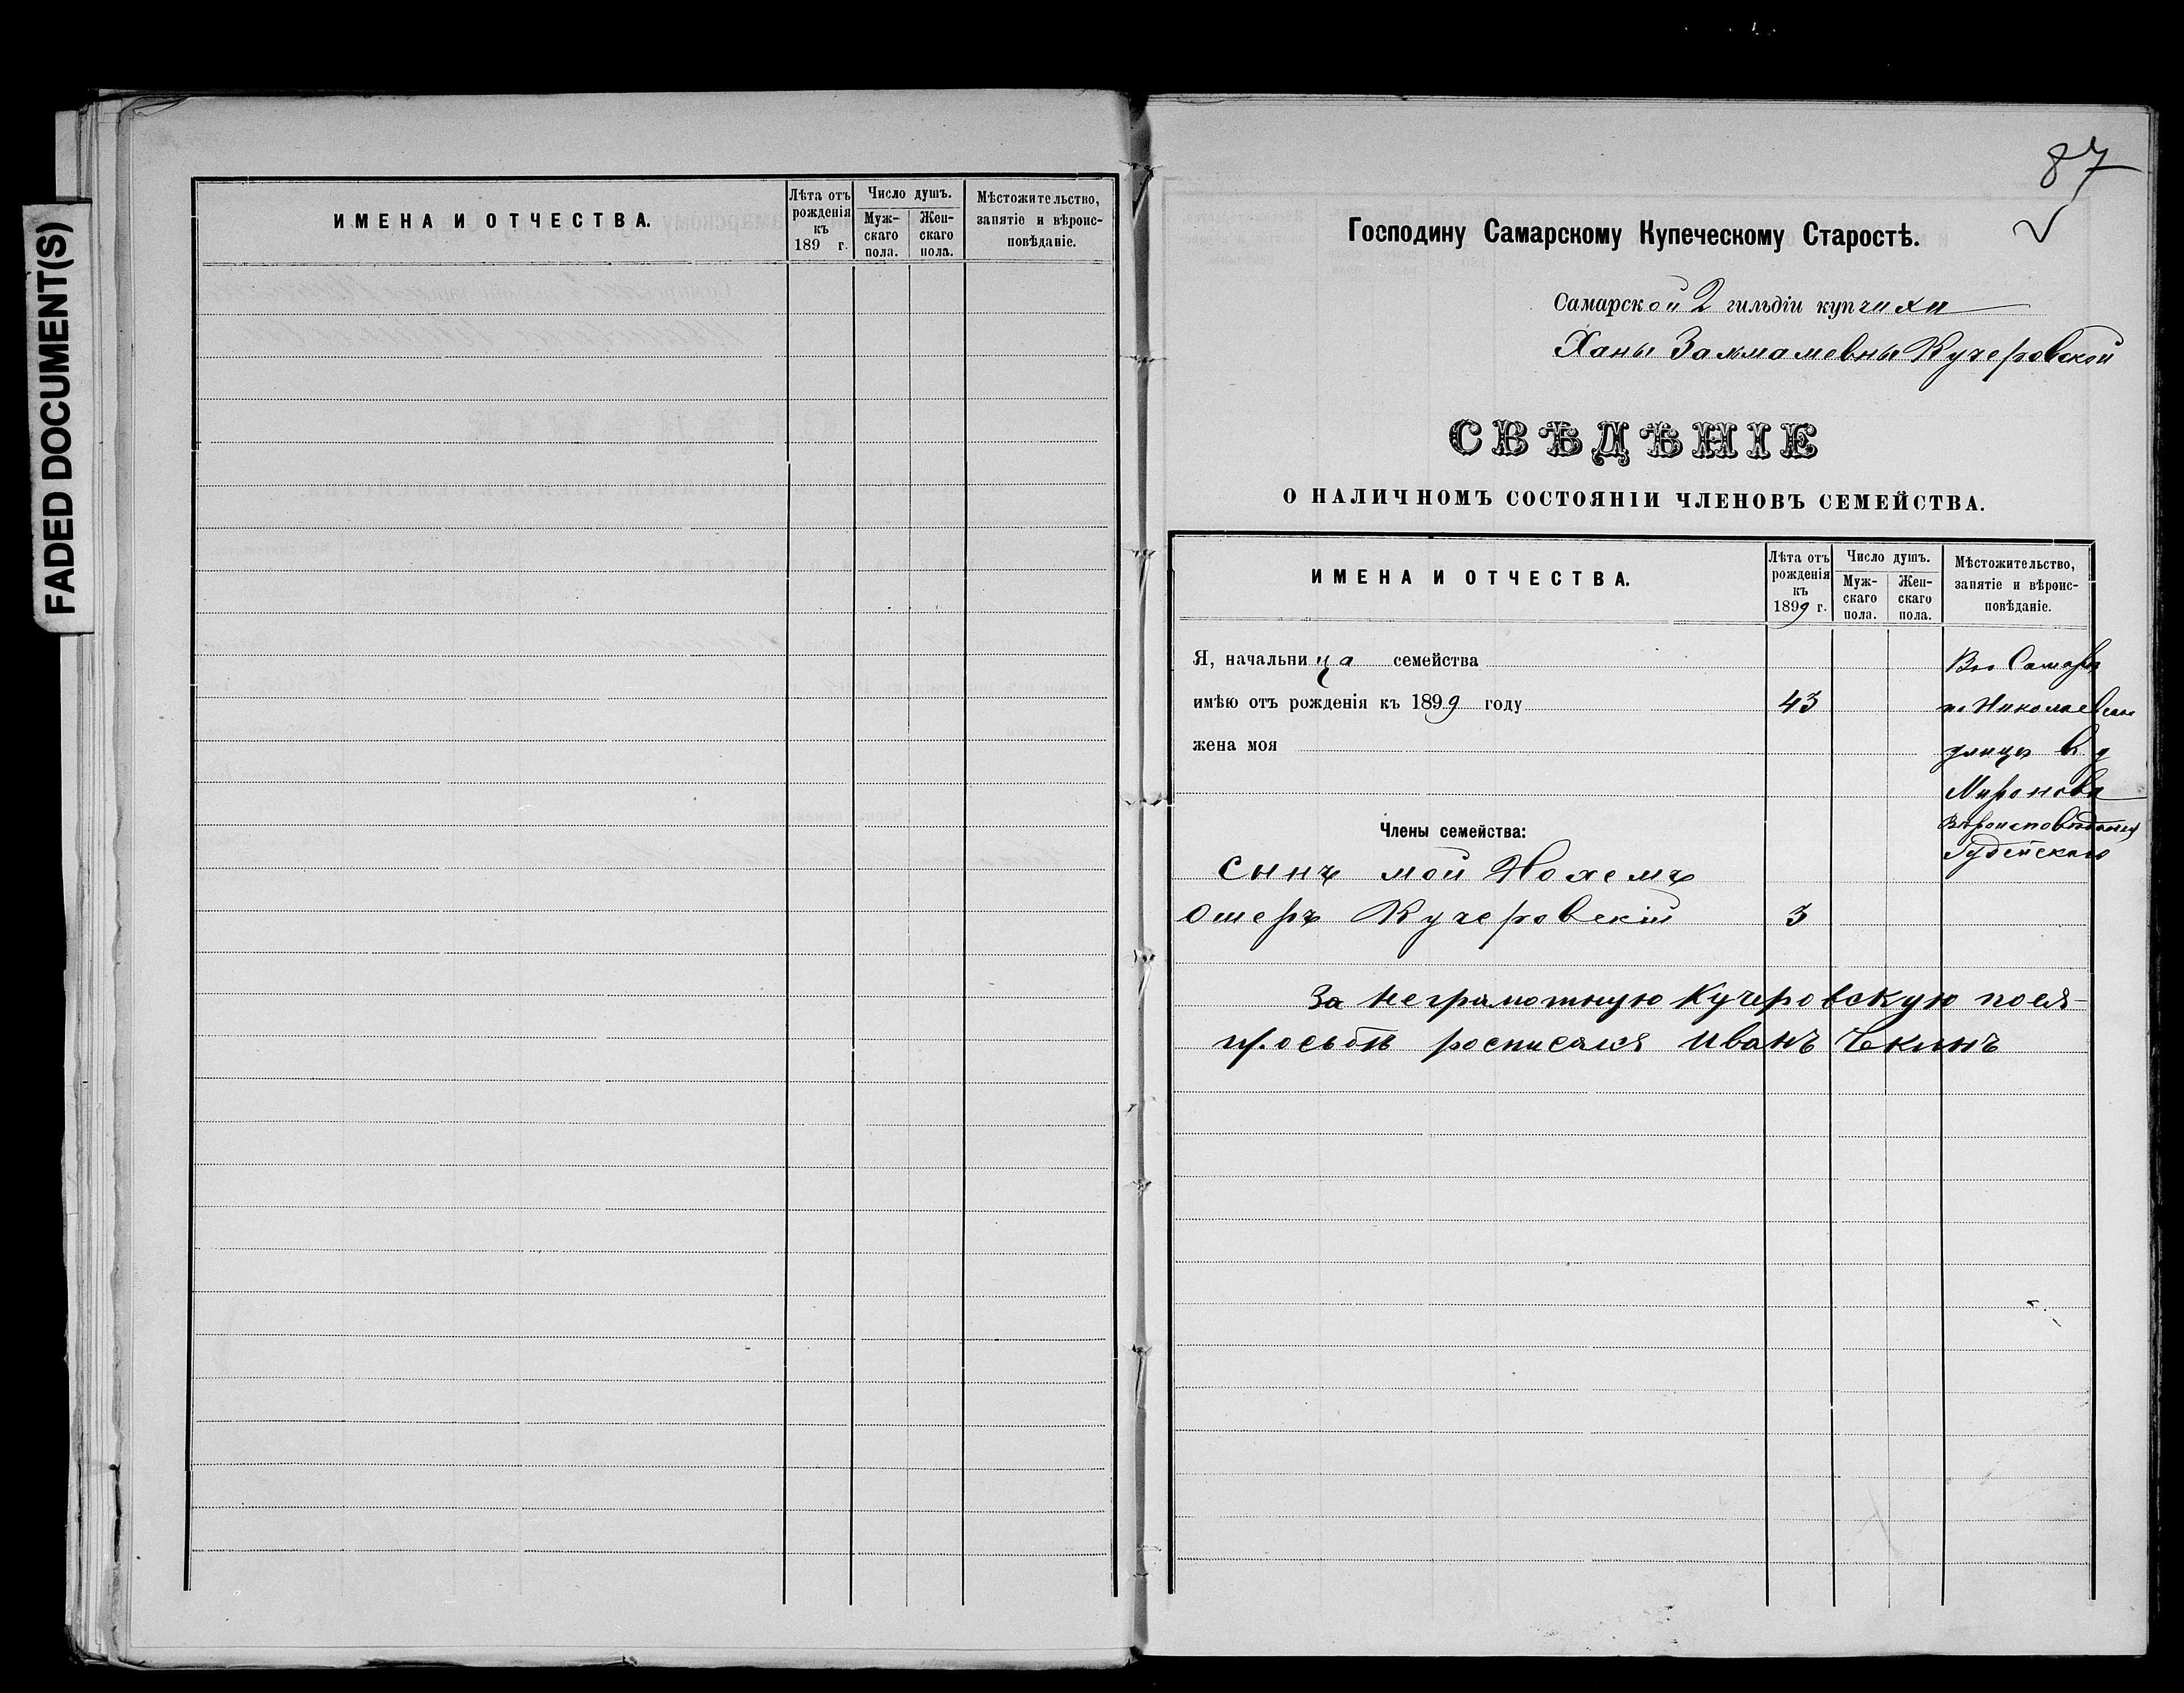 FADED DOCUMENT(S)
ИМЕНА И ОТЧЕСТВА.
Лѣта отъ рожденія къ 189 г.
Число душъ.
Муж-скаго пола.
Жен-скаго пола.
Мѣстожительство, занятіе и вѣроис-повѣданіе.
87
Господину Самарскому Купеческому Старостѣ.
Самарской 2 гильдіи купчихи
Ханы Залмамевны Кучеровской
СВѢДѢНІЕ
О НАЛИЧНОМЪ СОСТОЯНІИ ЧЛЕНОВЪ СЕМЕЙСТВА.
ИМЕНА И ОТЧЕСТВА.
Лѣта отъ рожденія къ 1899 г.
Число душъ.
Муж-скаго пола.
Жен-скаго пола.
Мѣстожительство, занятіе и вѣроис-повѣданіе.
Я, начальница семейства
Въ Самарѣ
имѣю отъ рожденія къ 1899 году 43
по Николаевской
жена моя
улицѣ в д
Миронова
Члены семейства:
Вѣроисповѣданія
Іудейскаго
Сынъ мой Нохемъ
Ошеръ Кучеровскій 3
За неграмотную Кучеровскую поея
просьбѣ росписался Иванъ Чекинъ